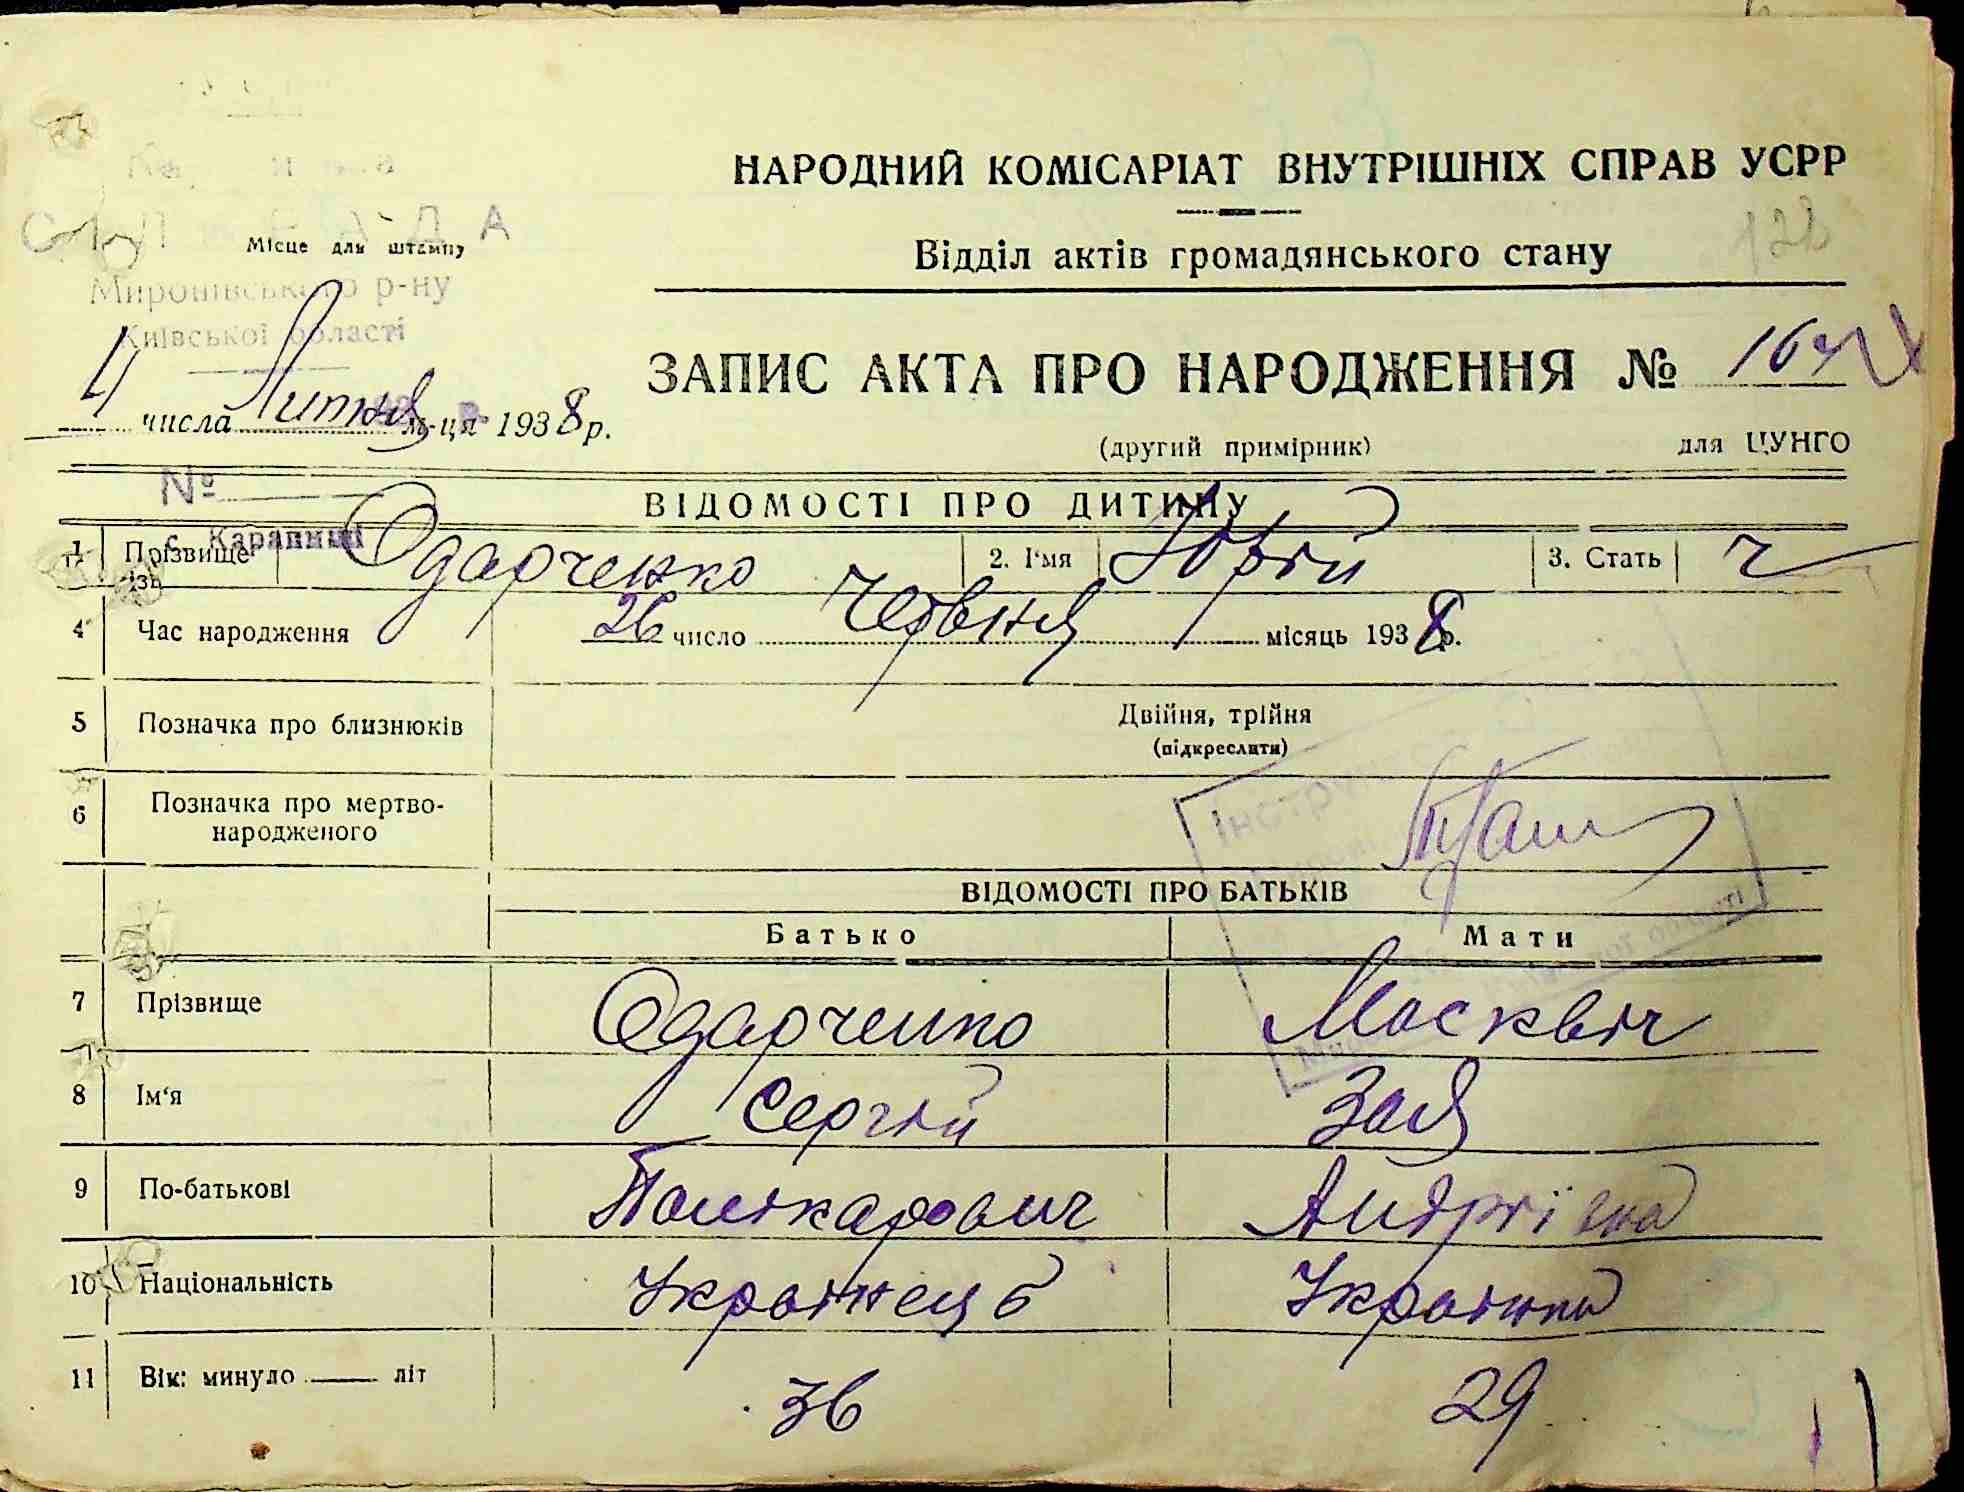 НАРОДНИЙ КОМІСАРІАТ ВНУТРІШНІХ СПРАВ УСРР
Відділ актів громадянського стану
122
СІЛЬРАДА
Місце для штампу
Миронівського р-ну
Київської області
4 числа Липня м-ця 1938 р.
ЗАПИС АКТА ПРО НАРОДЖЕННЯ №
(другий примірник)
для ЦУНГО
№
с. Карапиші
ВІДОМОСТІ ПРО ДИТИНУ
1 Прізвище Одарченко 2. І'мя Юрій 3. Стать ч
4 Час народження 26 число Червня місяць 1938 р.
5 Позначка про близнюків Двійня, трійня
(підкреслити)
6 Позначка про мертво-
народженого
Інструк
області
ВІДОМОСТІ ПРО БАТЬКІВ
Батько Мати
7 Прізвище Одарченко Москвіч
8 Ім'я Сергій Зоя
9 По-батькові Полікарович Андріївна
10 Національність Українець Українка
11 Вік: минуло літ 36 29